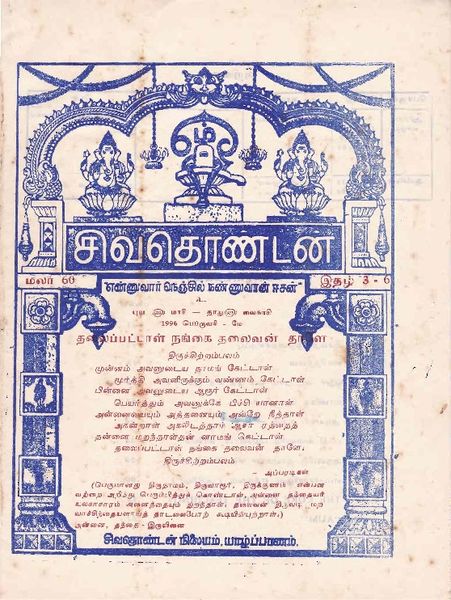 சிவதொண்டன்
மலர் 60 இதழ் 3 - 6
"எண்ணுவார் நெஞ்சில் நண்ணுவான் ஈசன்"
உ
மாசி — தாது வைகாசி
1996 பெப்ருவரி - மே
தலைப்பட்டாள் நங்கை தலைவன் தாளே
திருச்சிற்றம்பலம்
முன்னம் அவனுடைய நாமங் கேட்டாள்
மூர்த்தி அவனிருக்கும் வண்ணம் கேட்டாள்
பின்னை அவனுடைய ஆரூர் கேட்டாள்
பெயர்த்தும் அவனுக்கே பிச்சி யானாள்
அன்னையையும் அத்தனையும் அன்றே நீத்தாள்
அகன்றாள் அகலிடத்தார் ஆசா ரத்தைத்
தன்னை மறந்தாள்தன் னாமங் கெட்டாள்
தலைப்பட்டாள் நங்கை தலைவன் தாளே.
திருச்சிற்றம்பலம்
- அப்பரடிகள்
(பெருமானது திருநாமம், திருவாரூர், திருக்குணம் என்பன
வற்றை அறிந்து கொண்டாள், அன்னை தந்தையர்
உலகாசாரம் அனைத்தையும் துறந்தாள், தலைவன்
கூடியின்புற்றாள்,)
அன்னை, தந்தை - இருவினை
சிவதொண்டன் நிலையம், யாழ்ப்பாணம்.